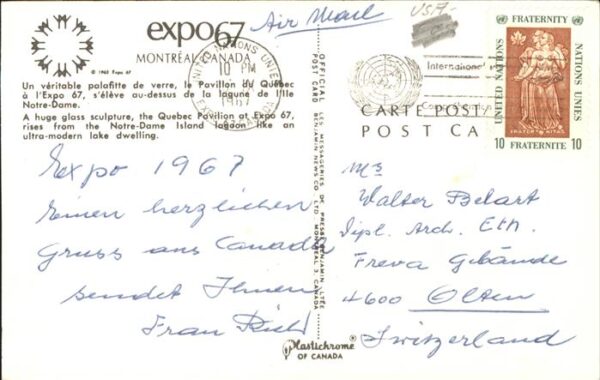 expo67
MONTRÉAL, CANADA
© 1963 Expo 67
Un véritable palafitte de verre, le Pavillon du Québec
à l'Expo 67, s'élève au-dessus de la lagune de l'Ile
Notre-Dame.
A huge glass sculpture, the Quebec Pavilion at Expo 67,
rises from the Notre-Dame Island lagoon like an
ultra-modern lake dwelling.
Air Mail
USA-
10 PM
1967
Expo 1967
Einen herzlichen
Gruss aus Canada
sendet Ihnen
OFFICIAL POST CARD
LES MESSAGERIES DE PRESSE BENJAMIN LTÉE
BENJAMIN NEWS CO. LTD. MONTREAL 3, CANADA
Plastichrome®
OF CANADA
International
CARTE POSTA
POST CA
FRATERNITY
UNITED NATIONS
NATIONS UNIES
FRATERNITAS
10 FRATERNITE 10
Walter Belart
Dipl. Arch. Eth.
Gebäude
4600 Olten
Switzerland